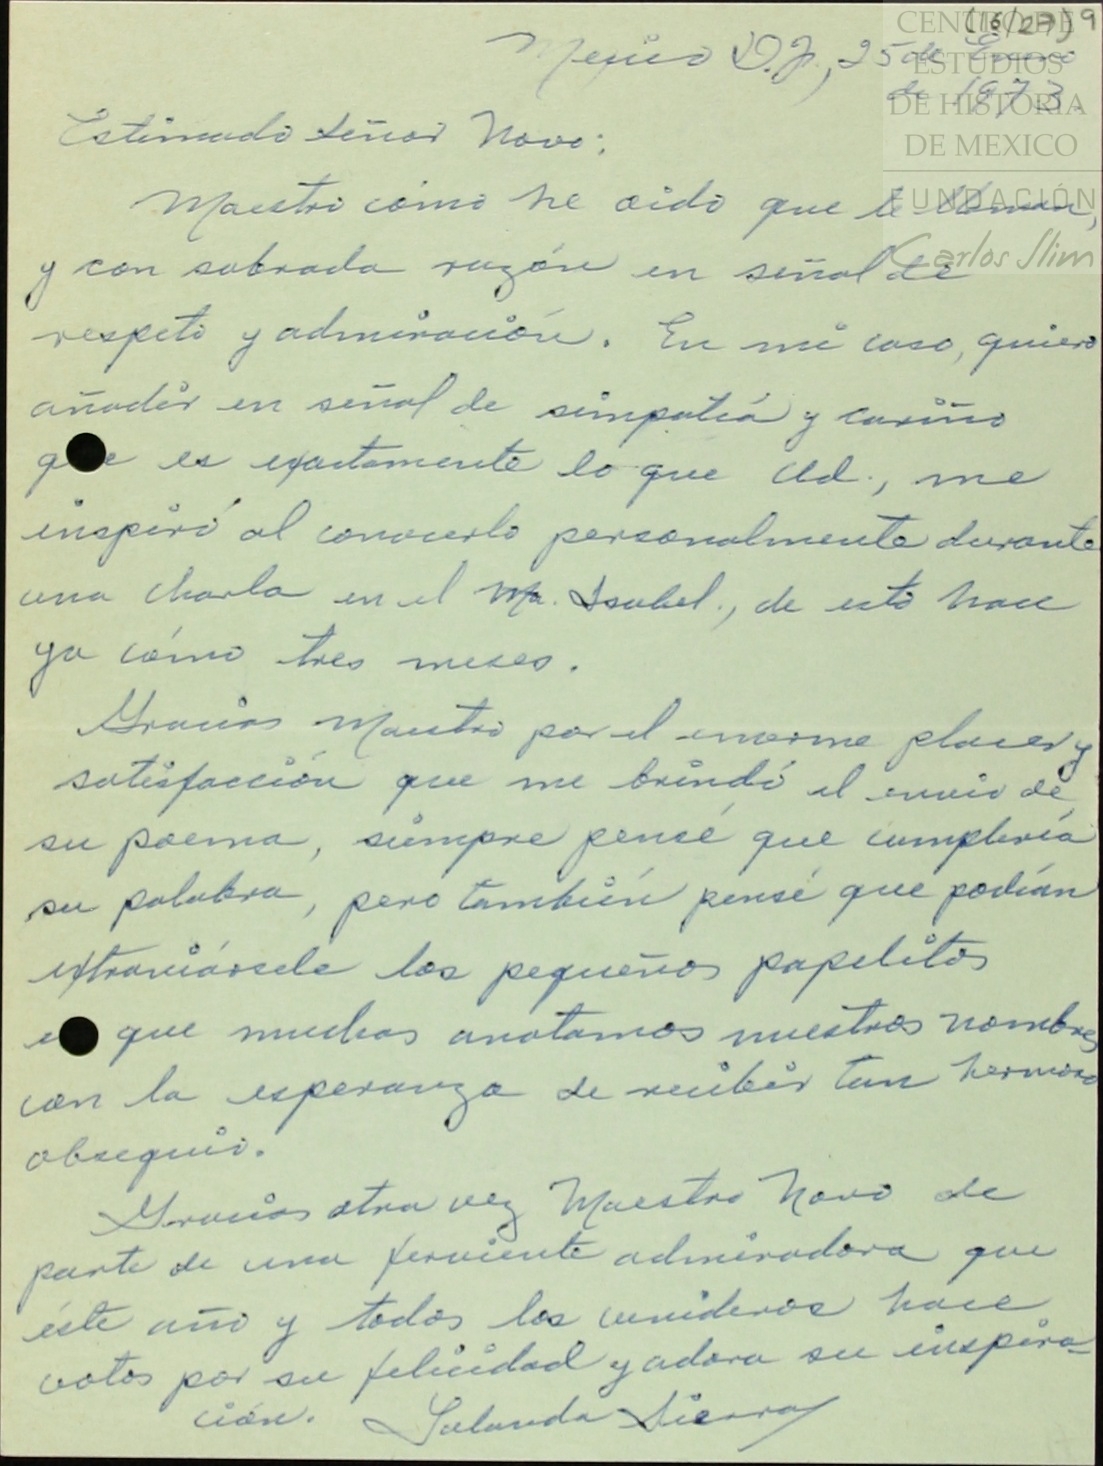 (16/27) 9
CENTRO DE
ESTUDIOS
DE HISTORIA
DE MEXICO
FUNDACIÓN
Carlos Slim
Mexico D.F., 25 de Enero
de 1973.
Estimado señor Novo:
Maestro cómo he oido que le llaman,
y con sobrada razón en señal de
respeto y admiración. En mi caso, quiero
añadir en señal de simpatía y cariño
que es exactamente lo que Ud., me
inspiró al conocerlo personalmente durante
una charla en el Ma. Isabel., de esto hace
ya cómo tres meses.
Gracias Maestro por el enorme placer y
satisfacción que me brindó el envio de
su poema, siempre pensé que cumpliría
su palabra, pero también pensé que podían
extraviársele los pequeños papelitos
en que muchas anotamos nuestros nombres
con la esperanza de recibir tan hermoso
obsequio.
Gracias otra vez Maestro Novo de
parte de una ferviente admiradora que
éste año y todos los venideros hace
votos por su felicidad y adora su inspira-
ción. Yolanda Sierra